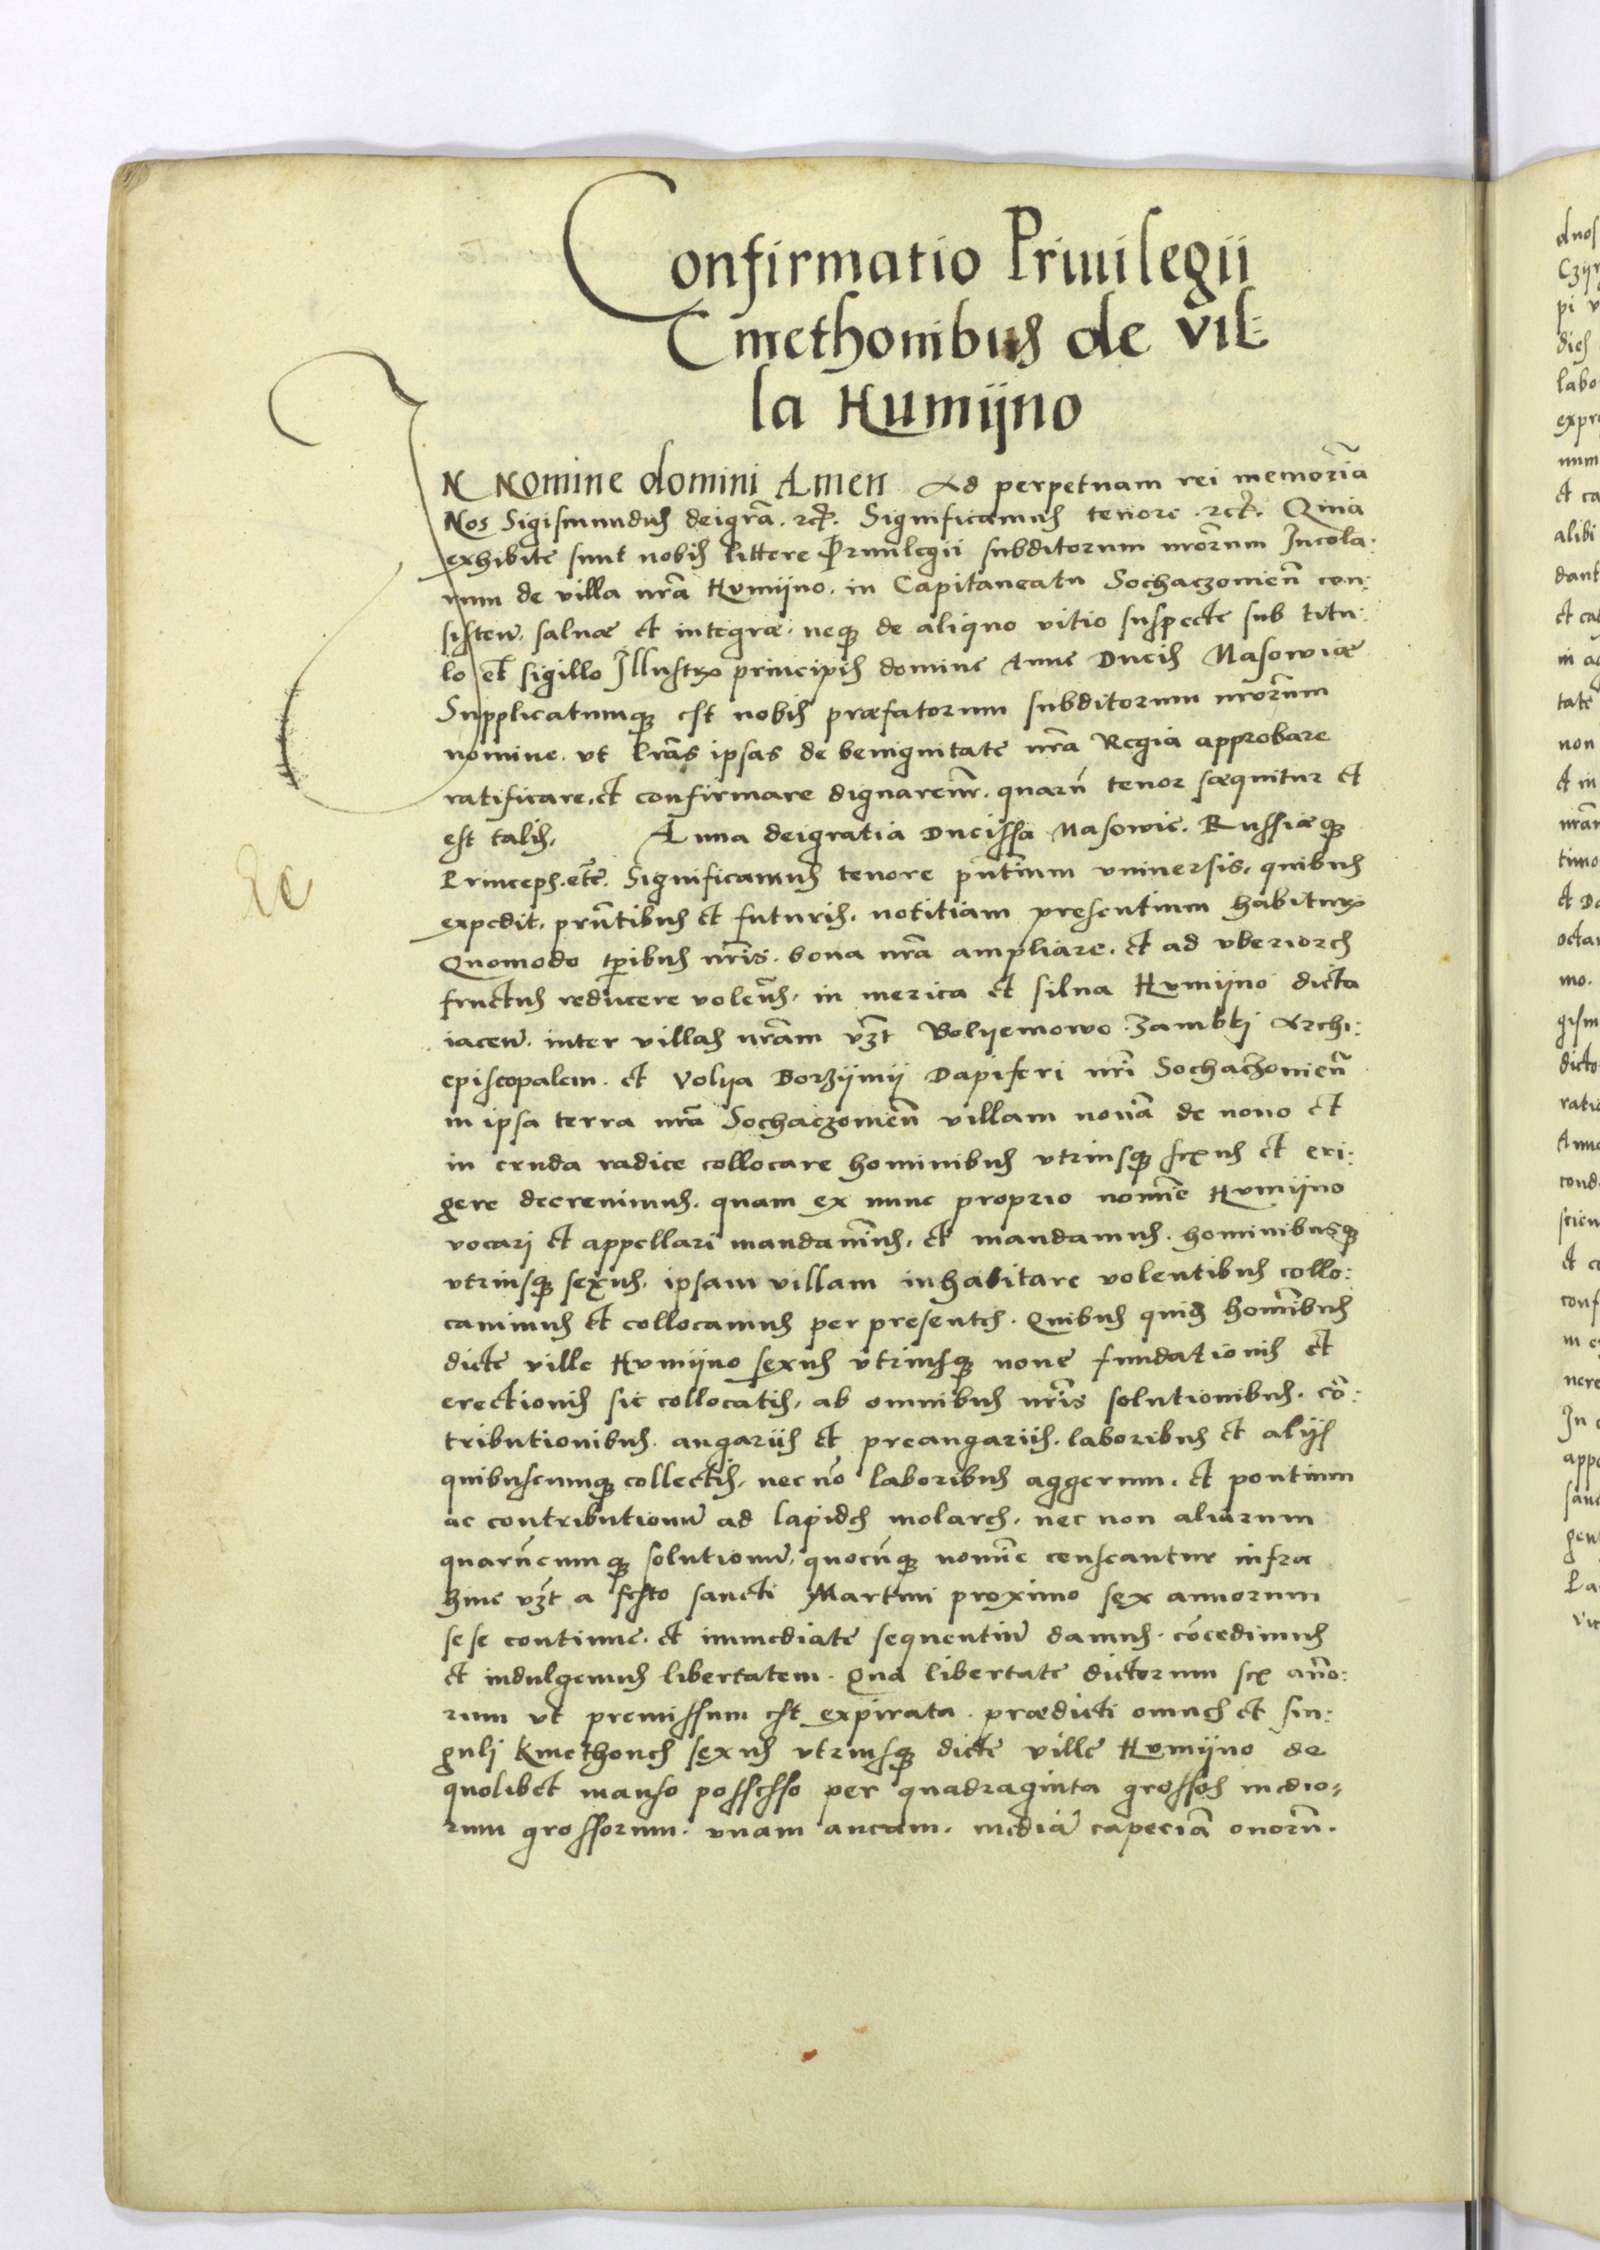 Confirmatio Priuilegii
Cmethonibus de vil
la Humijno
IN Nomine domini Amen Ad perpetuam rei memoriã
Nos Sigismundus deigrã. etc. Significamus tenore. etc. Quia
exhibite sunt nobis littere Priuilegii subditorum nrõrum Incola:
rum de villa nrã Humijno. in Capitaneatu Sochaczouieñ con:
sisten. saluæ et integræ. neque de aliquo vitio suspecte sub titu:
lo et sigillo Illustris principis domine Anne Ducis Masowiæ
Supplicatumque est nobis præfatorum subditorum nrõrum
nomine. vt lrãs ipsas de benignitate nrã Regia approbare
ratificare. et confirmare dignaremr. quarũ tenor sæquitur et
est talis. Anna deigratia Ducissa Masowie. Russiæque
Princeps. etc. Significamus tenore pñtium vniuersis. quibus
expedit. prñtibus et futuris. notitiam presentium habituris
Quomodo tpribus nrĩs. bona nrã ampliare. et ad vberiores
fructus reducere volentes. in merica et silua Humijno dicta
iacen. inter villas nrãm vzt Bolijemowo. Zambkj Archi:
episcopalem. et Volya Borzijmij Dapiferi nrĩ Sochaczouieñ
in ipsa terra nrã Sochaczouieñ villam nouã de nouo et
in cruda radice collocare hominibus vtriusque sexus et eri:
gere decreuimus. quam ex nunc proprio nomine Humijno
vocari et appellari mandauimus. et mandamus. hominibusque
vtriusque sexus. ipsam villam inhabitare volentibus collo:
cauimus et collocamus per presentes. Quibus quidem hominibus
dicte ville Humijno sexus vtriusque noue fundationis et
erectionis sic collocatis. ab omnibus nrĩs solutionibus. cõ:
tributionibus. angariis et preangariis. laboribus et alijs
quibuscumque collectis. nec nõ laboribus aggerum. et pontium
ac contributionũ ad lapides molares. nec non aliarum
quarũcumque solutionũ. quocũque nomine censeantur infra
hinc vzt a festo sancti Martini proximo sex annorum
se se continue. et immediate sequentiũ damus. cõcedimus
et indulgemus libertatem. Qua libertate dictorum sex anno:
rum vt premissum est expirata. prædicti omnes et sin:
gulj kmethones sexus vtriusque dicte ville Humijno de
quolibet manso possesso per quadraginta grossos medio:
rum grossorum. vnam aucam. mediã capeciã ouorũ.